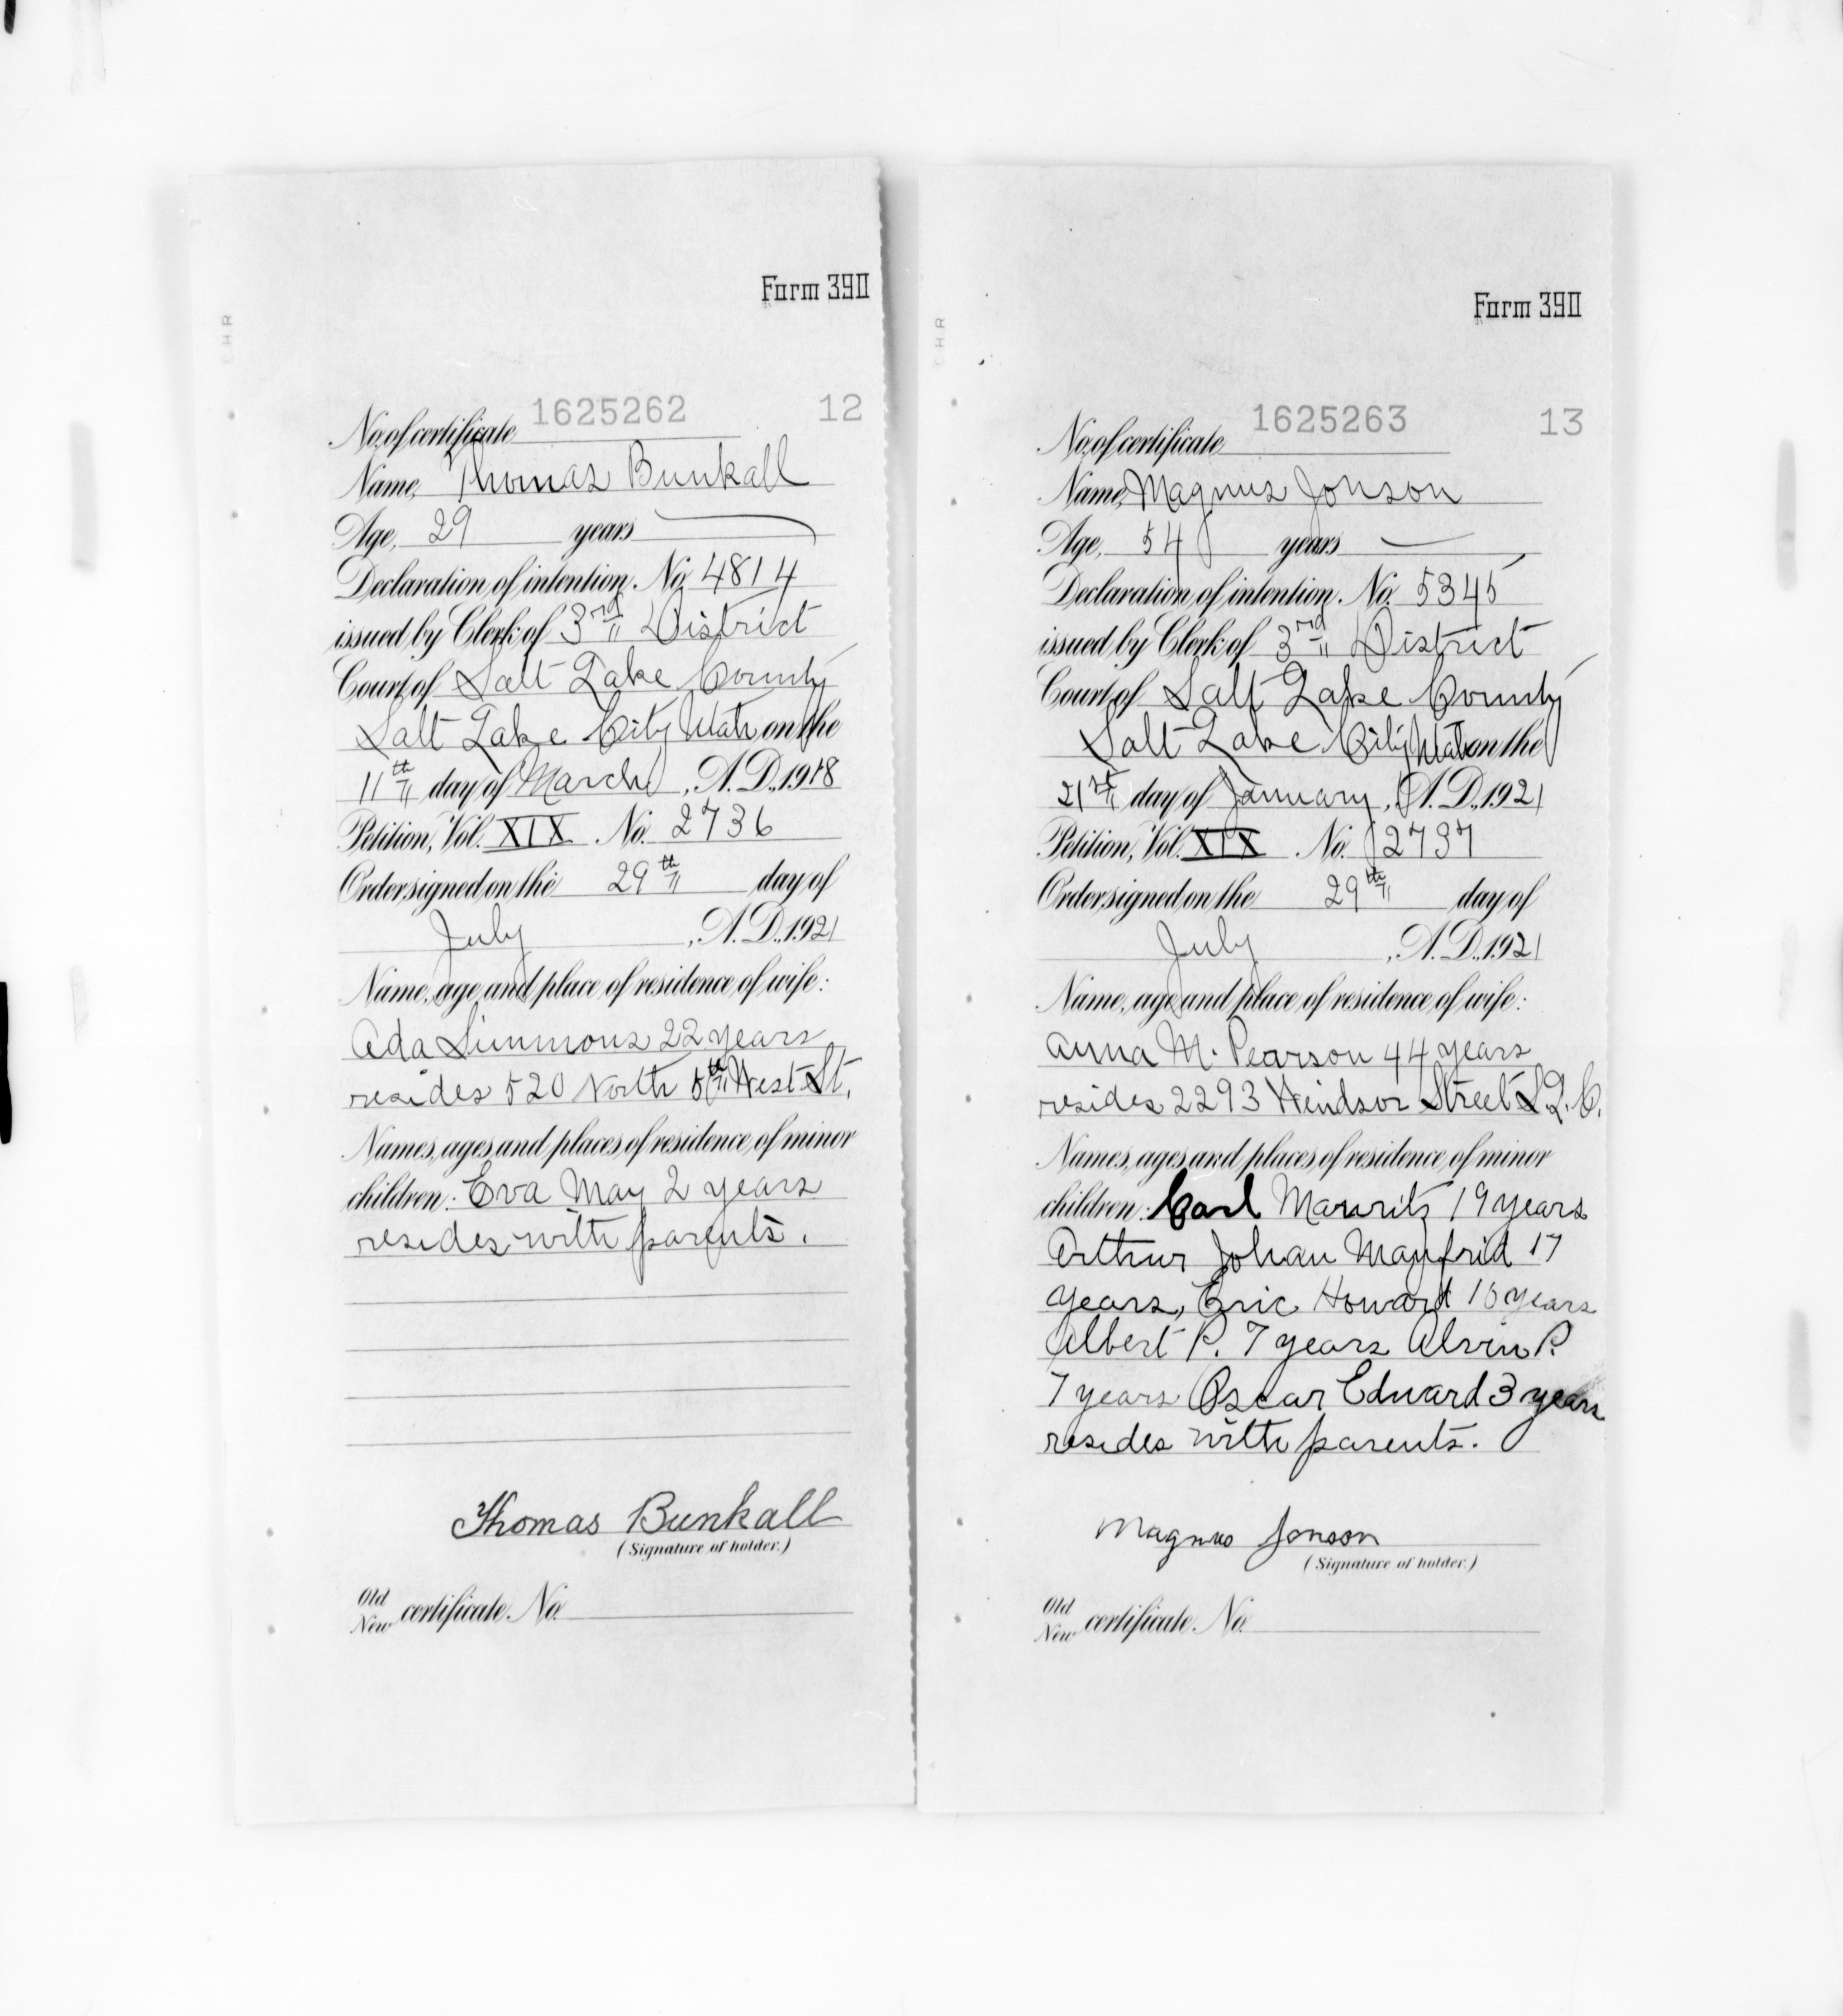 Form 390
1625262 12
No. of certificate
Name, Thomas Bunkall
Age, 29 years
Declaration of intention. No. 4814
issued by Clerk of 3rd District
Court of Salt Lake County
Salt Lake City Utah on the
11th day of March, A.D., 1918
Petition, Vol. XIX No. 2736
Order signed on the 29th day of
July, A.D., 1921
Name, age and place of residence of wife:
Ada Simmons 22 years
resides 520 North 5th West St.
Names, ages and places of residence of minor
children: Eva May 2 years
resides with parents.
Thomas Bunkall
(Signature of holder.)
Old
New certificate. No.
Form 390
1625263 13
No. of certificate
Name, Magnus Jonson
Age, 54 years
Declaration of intention. No. 5345
issued by Clerk of 3rd District
Court of Salt Lake County
Salt Lake City Utah on the
21st day of January, A.D., 1921
Petition, Vol. XIX No. 2737
Order signed on the 29th day of
July, A.D., 1921
Name, age and place of residence of wife:
Anna M. Pearson 44 years
resides 2293 Windsor Street S.L.C.
Names, ages and places of residence of minor
children: Carl Mauritz 19 years
Arthur Johan Manfrid 17
years, Eric Howard years
Albert P. 7 years Alvin P.
7 years Oscar Edward 3 years
resides with parents.
Magnus Jonson
(Signature of holder.)
Old
New certificate. No.